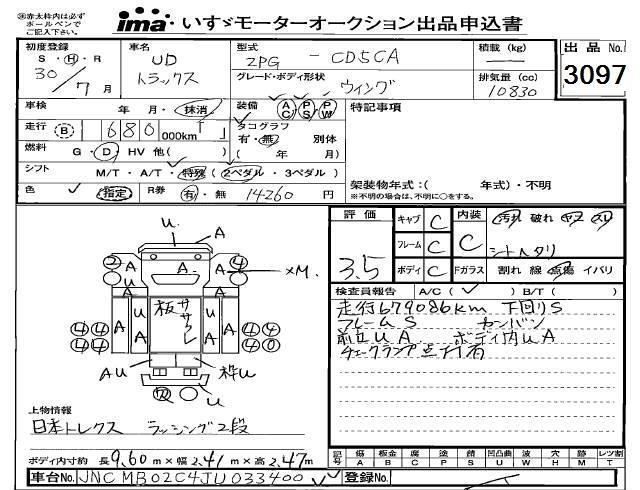 ※赤太枠内は必ず
ボールペンで
ご記入下さい。
ima いすゞモーターオークション出品申込書
初度登録 車名 型式 積載(kg)
S・H・R UD 2PG - CD5CA
30/7月 トラックス グレード・ボディ形状 ウィング 排気量(cc) 10830
出品No. 3097
車検 年・月・抹消 装備 AC PS PW 特記事項
走行 B 680 000km タコグラフ 有・無 別体
燃料 G・D・HV 他( ) ( 年 月)
シフト M/T・A/T・特殊(2ペダル・3ペダル) 架装物年式:( 年式)・不明
色 指定 R券 有・無 14260円 ※不明の場合は、不明に○をする。
評価 3.5 キャブ C 内装 C 汚れ 破れ
フレーム C シートヘタリ
ボディ C Fガラス 割れ 線 点傷 イバリ
検査員報告 A/C( ) B/T( )
走行679086km 下回りS
フレームS カンバン
前立UA ボディ内UA
チェックランプ点灯有
U A
② A ④
A ×M
A U A 板ササクレ U A A
④④ ④④
④④ ④④
AU 枠U
U
上物情報
日本トレクス ラッシング2段
ボディ内寸約 長9.60m×幅2.41m×高2.47m
記号 傷 板金 腐 塗 凹 凸凹曲 波 歪 穴 飛 無 レツ割
A B C P S U W H X M T
車台No. JNCMB02C4JU033400 登録No.